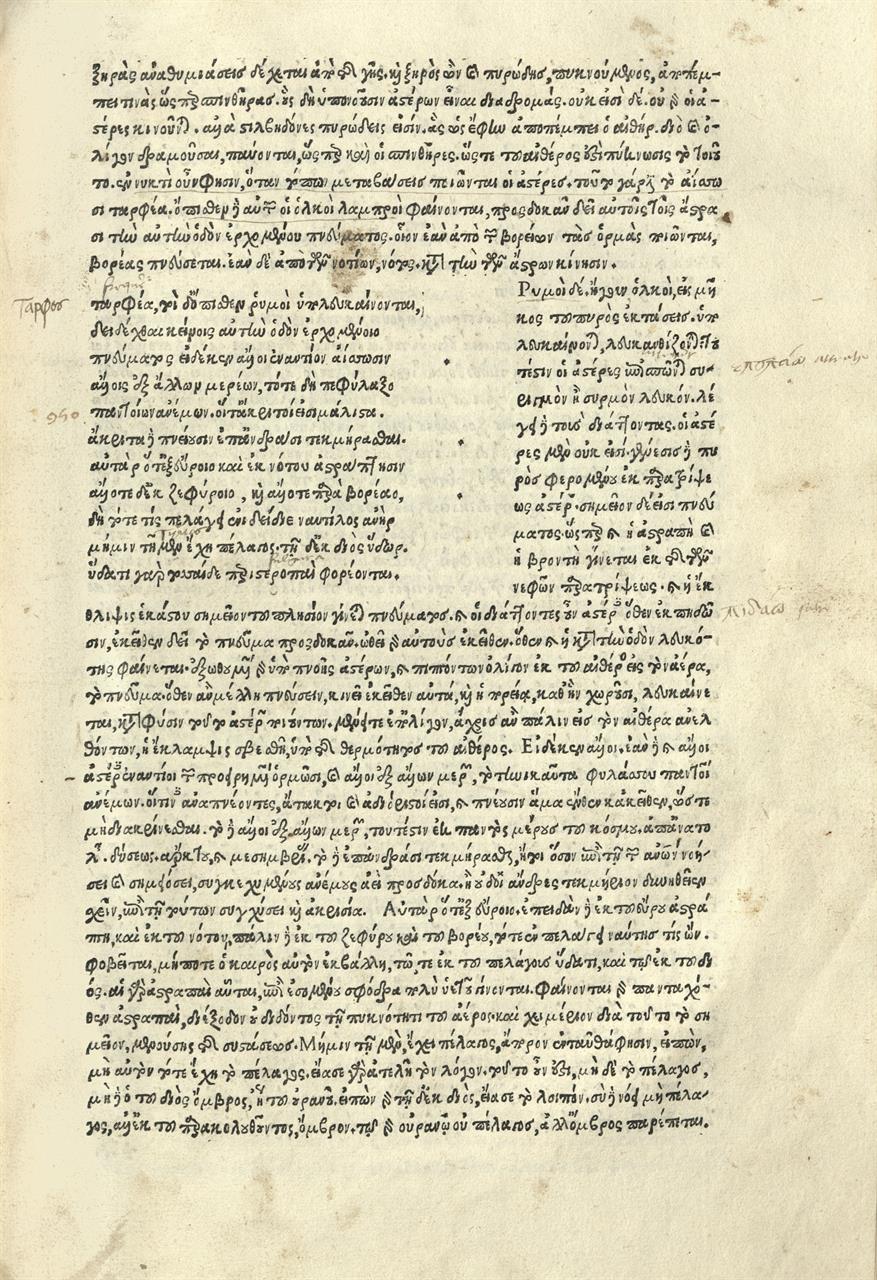 ξηρὰς ἀναθυμιάσεις δέχεται ἀπὸ τῆς γῆς. καὶ ξηρὸς ὢν καὶ πυρώδης, πυκνούμενος, ἀποπέμ-
πει τινὰς ὥσπερ σπινθῆρας. ἃς δὴ ὑπονοοῦσιν ἀστέρων εἶναι διαδρομάς. οὐκ εἰσὶ δέ. οὐ γὰρ οἱ ἀ-
στέρες κινοῦνται. ἀλλὰ στιλβηδόνες πυρώδεις εἰσίν. ἃς ὡς ἔφην ἀποπέμπει ὁ αἰθήρ. διὸ καὶ ὀ-
λίγον δραμοῦσαι, παύονται, ὥσπερ καὶ οἱ σπινθῆρες. ὥστε τοῦ αἰθέρος ἐστὶ πύκνωσις τὸ τοιοῦ
το. ἐν νυκτὶ οὖν φησιν, ὅταν τόπων μεταβάσεις ποιῶνται οἱ ἀστέρες. τοῦτο γάρ ἐστι τὸ ἀΐσσω
σι ταρφέα. ὄπισθεν δὲ αὐτῶν οἱ ὁλκοὶ λαμπροὶ φαίνονται, προσδοκᾶν δεῖ αὐτοῖς τοῖς ἄστρα
σι τὴν αὐτὴν ὁδὸν ἐρχομένου πνεύματος. οἷον ἐὰν ἀπὸ τῶν βορείων τὰς ὁρμὰς ποιῶνται,
βορέας πνεύσεται. ἐὰν δὲ ἀπὸ τῶν νοτίων, νότος. κατὰ τὴν τῶν ἄστρων κίνησιν.
Ταρφος
ταρφέα, τοὶ δ' ὄπισθεν ῥυμοὶ ὑπολευκαίνονται,
δειδέχθαι κείνοις αὐτὴν ὁδὸν ἐρχομένοιο
πνεύματος εἰ δέ κεν ἄλλοι ἐναντίον ἀΐσσωσιν
ἄλλοις ἐξ ἄλλων μερέων, τότε δὴ πεφύλαξο
παντοίων ἀνέμων. οἵ τ' ἄκριτοί εἰσι μάλιστα.
ἄκριτα δὲ πνείουσιν ἐπ' ἀνδράσι τεκμήρασθαι.
αὐτὰρ ὅτ' ἐξ εὔροιο καὶ ἐκ νότου ἀστράπτησιν
ἄλλοτε δ' ἐκ ζεφύροιο, καὶ ἄλλοτε παρὰ βορέαο,
δὴ τότε τις πελάγει ἐνι δείδιε ναυτίλος ἀνὴρ
μή μιν τῇ μὲν ἔχῃ πέλαγος. τῇ δ' ἐκ διὸς ὕδωρ.
ὕδατι γὰρ τοσσαίδε περιστεροπαὶ φορέονται.
Ῥυμοὶ δέ. ἤγουν ὁλκοὶ, εἰς μῆ
κος τοῦ πυρὸς ἐκτάσεις. ὑπο
λευκαίνονται, λευκανθίζονται. του
τέστιν οἱ ἀστέρες ποιοῦνται συ-
ρισμὸν ἢ συρμὸν λευκόν. λέ
γει δὲ τοὺς διάττοντας. οἱ ἀστέ
ρες μὲν οὐκ εἰσί. χύσεσι δὲ πυ
ρὸς φερομένου ἐκ παρατρίψε
ως ἀστέρων. σημεῖον δέ εἰσι πνεύ
ματος. ὥσπερ καὶ ἡ ἀστραπὴ καὶ
ἡ βροντὴ γίνεται ἐκ τῆς τῶν
νεφῶν παρατρίψεως. καὶ ἡ ἔκ
θλιψις ἑκάστου σημεῖον τοῦ πλησίον γίνεται πνεύματος. καὶ οἱ διάττοντες οὖν ἀστέρες ὅθεν ἐκπηδῶ
σιν, ἐκεῖθεν δεῖ τὸ πνεῦμα προσδοκᾶν. ὠθεῖ γὰρ αὐτοὺς ἐκεῖθεν. ὅθεν καὶ ἡ κατὰ τὴν ὁδὸν λευκό-
της φαίνεται. ἐξωθουμένων γὰρ ὑπὸ πνοῆς ἀστέρων, καὶ πιπτόντων ὀλίγον ἐκ τοῦ αἰθέρος εἰς τὸν ἀέρα,
τὸ πνεῦμα ὅθεν ἂν μέλλῃ πνεύσειν, κινεῖ ἐκεῖθεν αὐτά, καὶ ἡ πορεία, καθ' ἣν χωροῦσι, λευκαίνε
ται, κατὰ φύσιν τοῦ τῶν ἀστέρων ποιούντων. μένει τε ἐπ' ὀλίγον, ἄχρις ἂν πάλιν εἰς τὸν αἰθέρα ἀνελ
θόντων, ἡ ἔκλαμψις σβεσθῇ, ὑπὸ τῆς θερμότητος τοῦ αἰθέρος. Εἰ δέ κεν ἄλλοι. ἐὰν δὲ καὶ ἄλλοι
ἀστέρες ἐναντίοι τῶν προειρημένων ὁρμῶσι, καὶ ἄλλοι ἐξ ἄλλων μερῶν, τὸ τηνικαῦτα φυλάσσου παντοί
ανέμων. οἵτινες ἀναπνέοντες, ἄτακτοι καὶ ἀδιόριστοί εἰσι, καὶ πνέουσιν ἅμα ἔνθεν κἀκεῖθεν, ὥστε
μὴ διακρίνεσθαι. τὸ δὲ ἄλλοι ἐξ ἄλλων μερῶν, τουτέστιν ἐκ παντὸς μέρους τοῦ κόσμου. ἀπ' ἀνατο
λῆς. δύσεως. ἄρκτου, καὶ μεσημβρίας. τὸ δὲ ἐπ' ἀνδράσι τεκμήρασθαι, ἤτοι ὅσον ἐπὶ τῇ τῶν ἀνθρώπων νοή-
σει καὶ σημειώσει, συγκεχυμένους ἀνέμους ἀεὶ προσδόκα. ἢ οὐδὲ ἄνδρες τεκμήριον δυνηθεῖεν
σχεῖν, ἐπὶ τῇ τούτων συγχύσει καὶ ἀκρισίᾳ. Αὐτὰρ ὅτ' ἐξ εὔροιο. ἐπειδὰν δὲ ἐκ τοῦ εὔρου ἀστρά
πτῃ, καὶ ἐκ τοῦ νότου, πάλιν δὲ ἐκ τοῦ ζεφύρου καὶ τοῦ βορέου, τότε ἐν πελάγει ναύτης τις ὢν.
φοβεῖται, μήποτε ὁ καιρὸς αὐτὸν ἐκβάλλῃ, τῷ τε ἐκ τοῦ πελάγους ὕδατι, καὶ τῷ ἐκ τοῦ δι
ός. αἱ γὰρ ἀστραπαὶ αὗται, ἐπὶ ἐσομένου σφόδρα πολὺ ὑετοῦ γίνονται. Φαίνονται γὰρ πανταχό-
θεν ἀστραπαὶ, διέξοδον οὐ διδόντος τῇ πυκνότητι τοῦ ἀέρος. καὶ χειμέριον διὰ τοῦτο τὸ ση
μεῖον, μενούσης τῆς συστάσεως. Μή μιν τῇ μὲν, ἔχει πέλαγος, ἄπορον ἐνταῦθά φησιν, εἰπὼν,
μὴ αὐτὸν τότε ἔχῃ τὸ πέλαγος, εἴασε γὰρ ἀτελῆ τὸν λόγον. τοῦτο οὖν ἐστι, μὴ δὲ τὸ πέλαγος,
μὴ δὲ ὁ τοῦ διὸς ὄμβρος, ἢ τοῦ οὐρανοῦ. εἰπὼν γὰρ τῇ δ' ἐκ διὸς, εἴασε τὸ λοιπόν. σὺ δὲ νόει μὴ πέλα
γος, ἀλλ' ἐκ τοῦ παρακολουθοῦντος, ὄμβρον. τῷ γὰρ οὐρανῷ οὐ πέλαγος, ἀλλ' ὄμβρος παρέπεται.